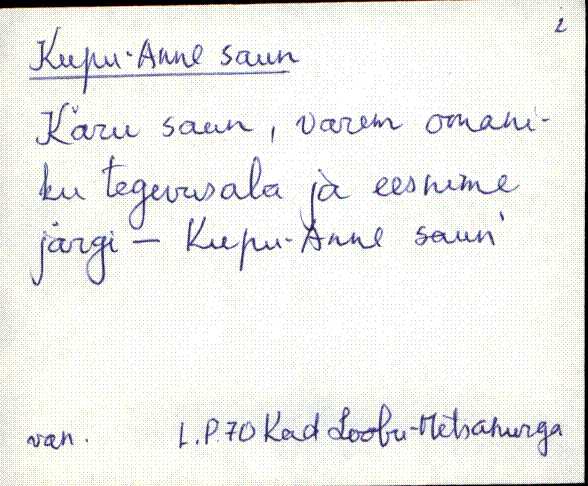 2
Kupu-Anne saun
Käru saun, varem omani-
ku tegevusala ja eesnime
järgi – Kupu-Anne saun
van. L.P.70 Kad Loobu-Metsanurga